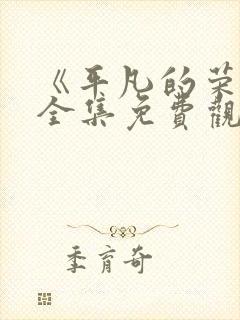 《平凡的荣
全集免費觀
季育奇